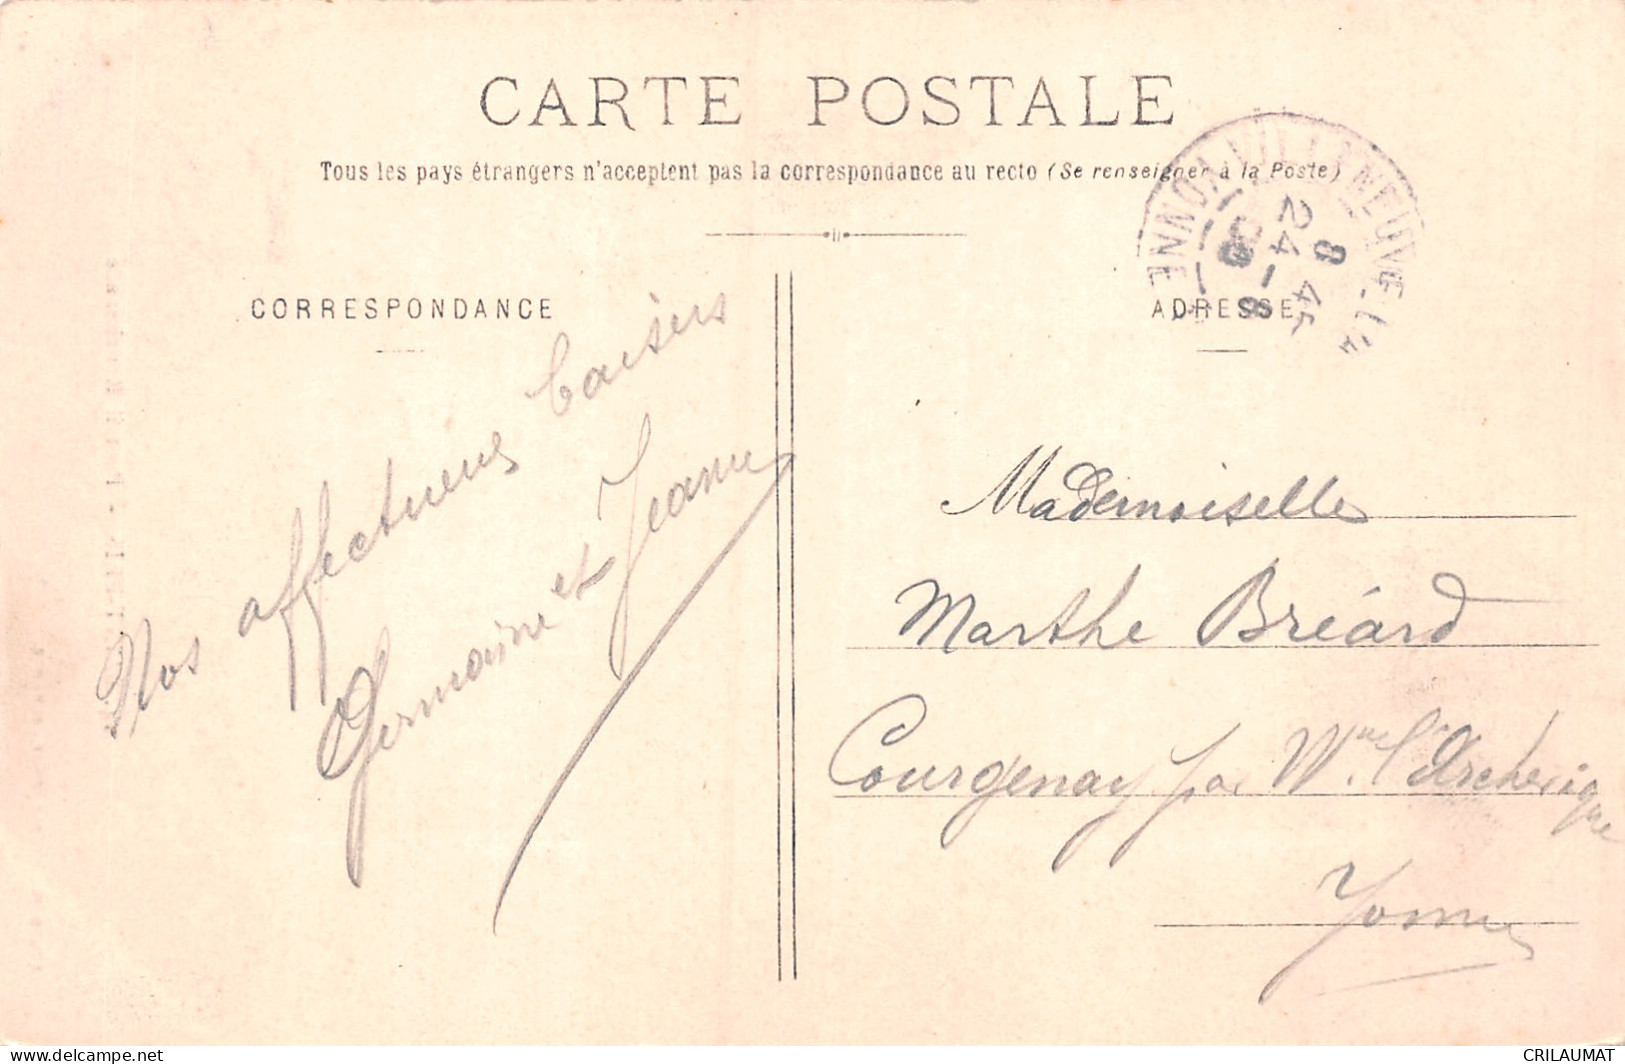 CARTE POSTALE
Tous les pays étrangers n'acceptent pas la correspondance au recto (Se renseigner à la Poste)
CORRESPONDANCE
ADRESSE
Nos affectueux baisers
Germaine et Jeanne
Mademoiselle
Marthe Bréard
Courgenay par Vve l'Archevêque
Yonne
24 - 8
8 45
YONNE
delcampe.net
CRILAUMAT